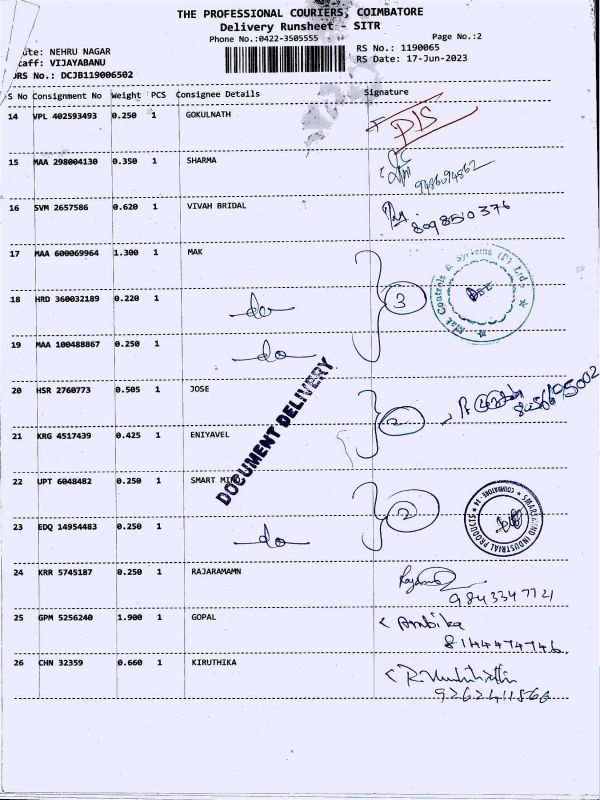 THE PROFESSIONAL COURIERS, COIMBATORE
Delivery Runsheet - SITR
Phone No.:0422-3505555 Page No.:2
ute: NEHRU NAGAR RS No.: 1190065
taff: VIJAYABANU RS Date: 17-Jun-2023
DRS No.: DCJB119006502
S No Consignment No Weight PCS Consignee Details Signature
14 VPL 402593493 0.250 1 GOKULNATH
15 MAA 298004130 0.350 1 SHARMA
16 SVM 2657586 0.620 1 VIVAH BRIDAL
8098510376
17 MAA 600069964 1.300 1 MAK
18 HRD 360032189 0.220 1 do 3
19 MAA 100488867 0.250 1 do
20 HSR 2760773 0.505 1 JOSE
DOCUMENT DELIVERY
2
21 KRG 4517439 0.425 1 ENIYAVEL
22 UPT 6048482 0.250 1 SMART MIND
2
23 EDQ 14954483 0.250 1 do
SMARTMIND INDUSTRIAL PRODUCTS * COIMBATORE - 14 *
24 KRR 5745187 0.250 1 RAJARAMAMN
9843347721
25 GPM 5256240 1.900 1 GOPAL Ambika
8144474746
26 CHN 32359 0.660 1 KIRUTHIKA
9262411866